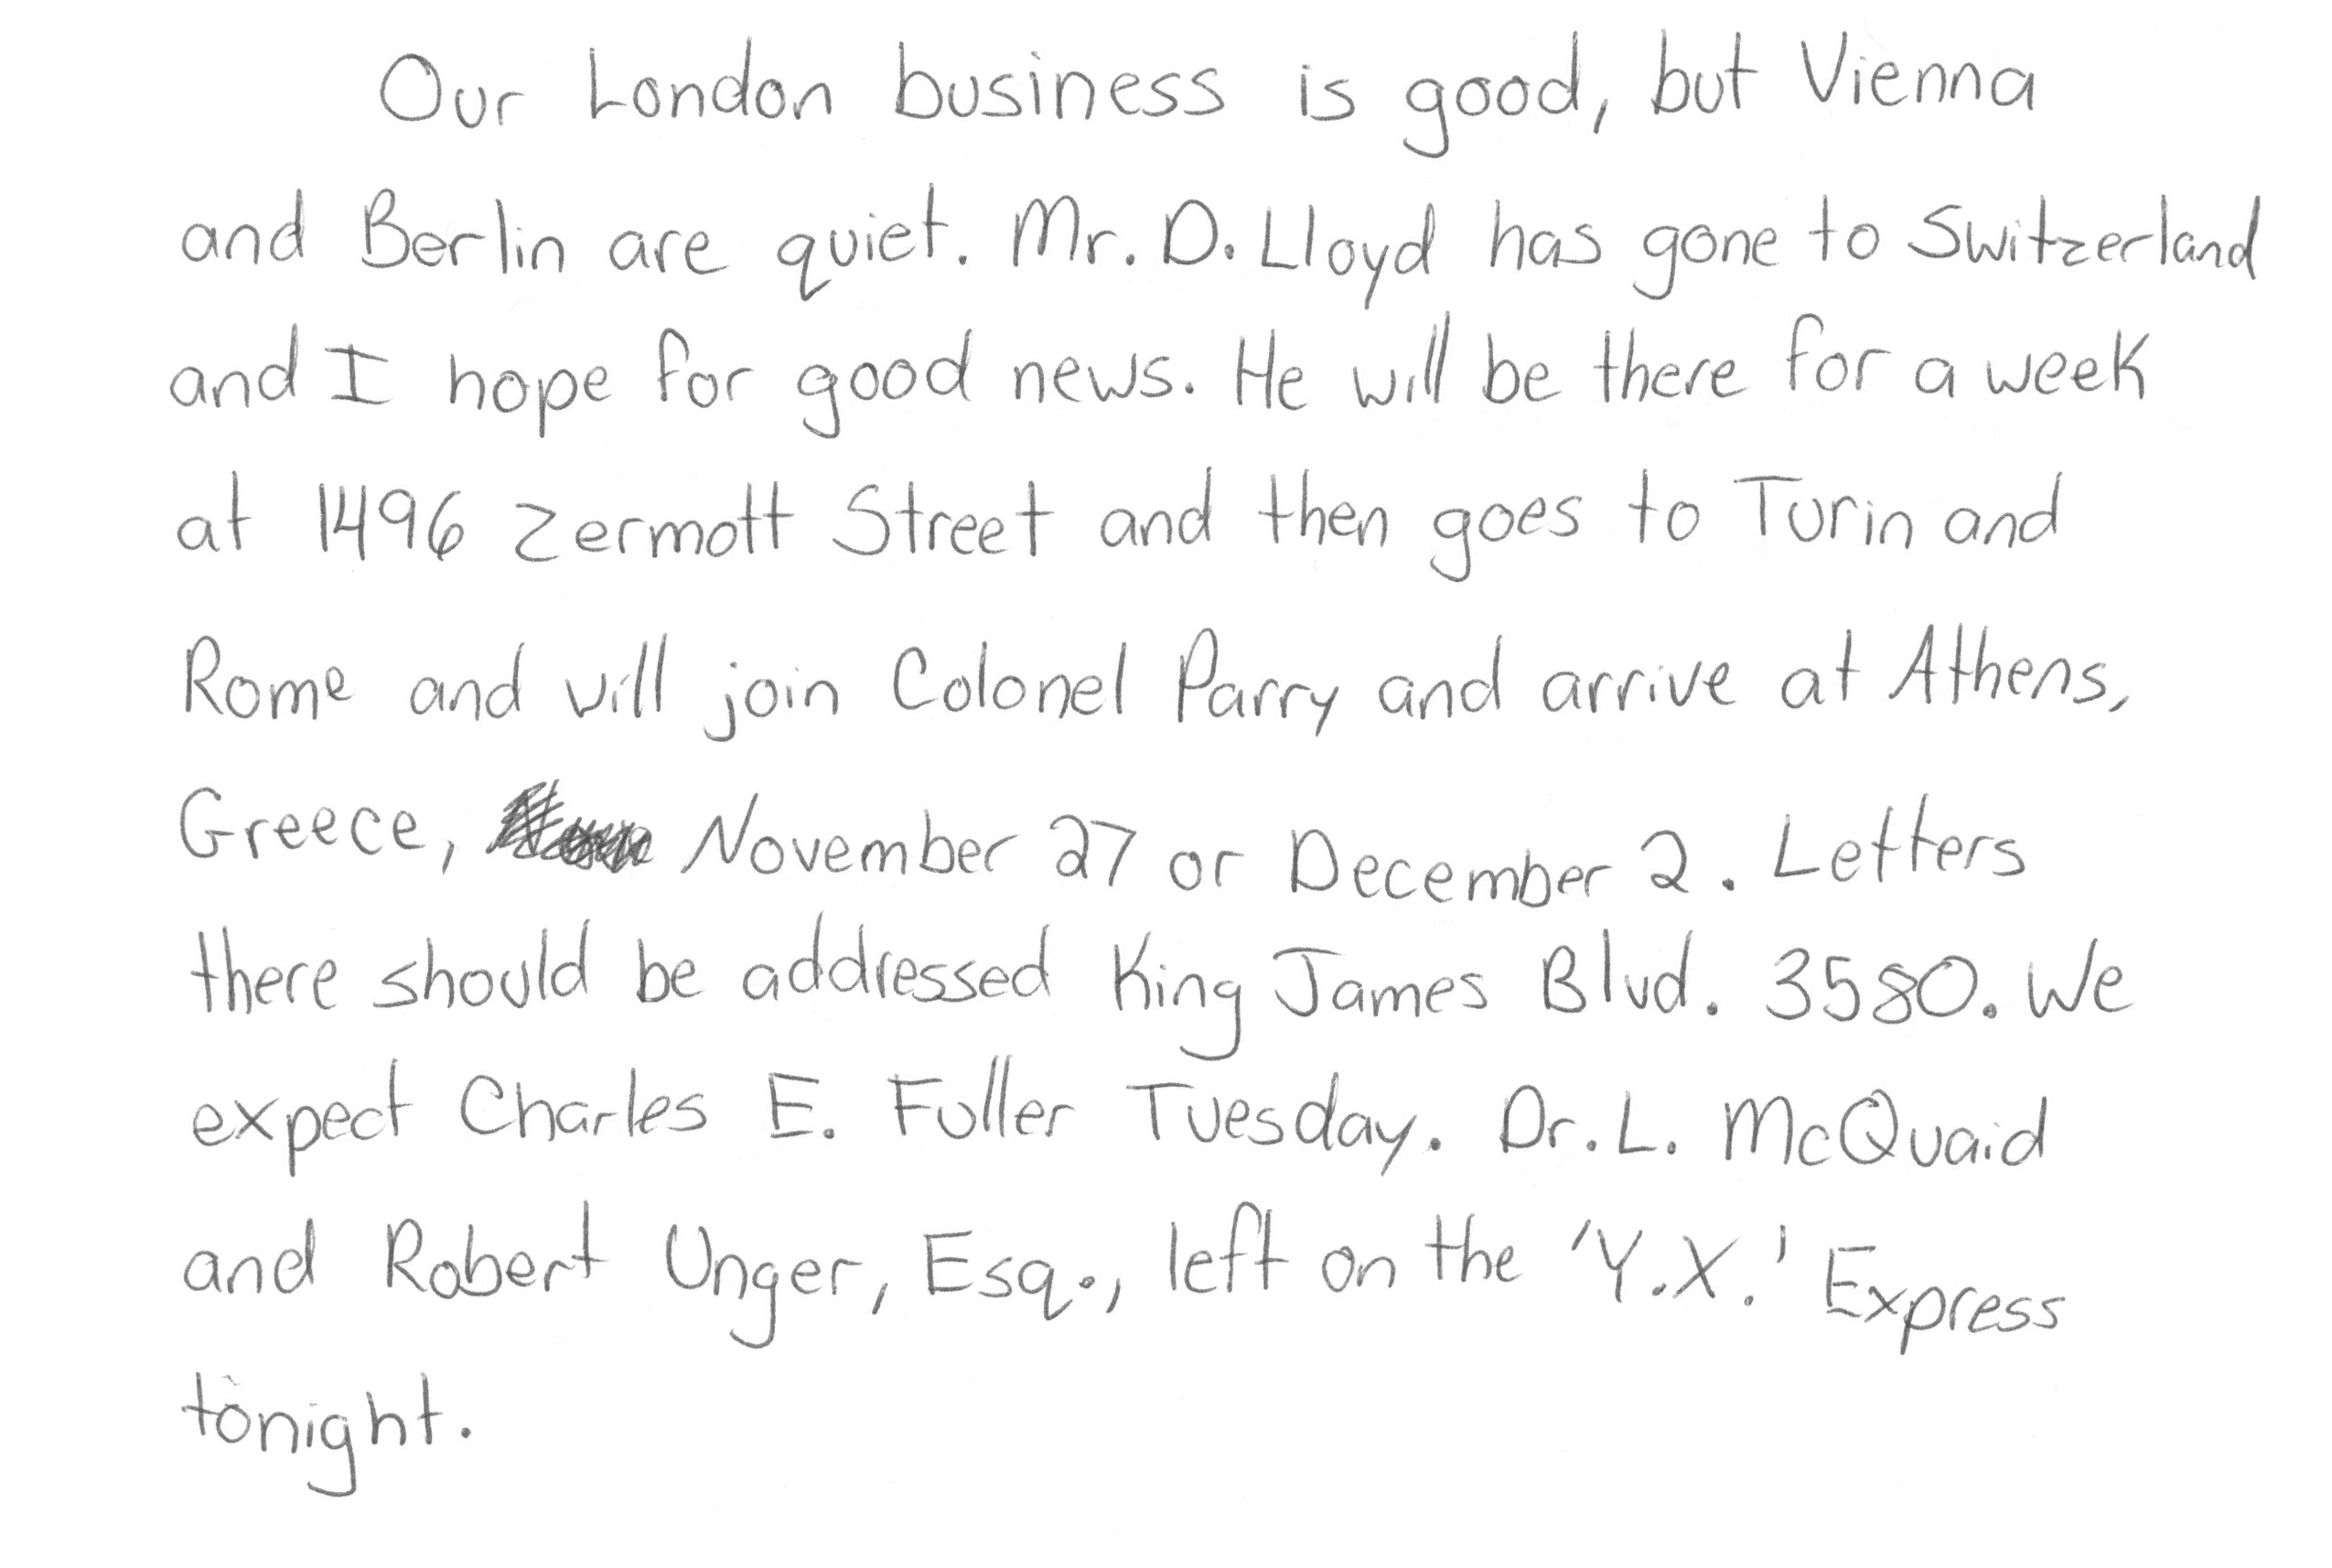 Our London business is good, but Vienna
and Berlin are quiet. Mr. D. Lloyd has gone to Switzerland
and I hope for good news. He will be there for a week
at 1496 Zermott Street and then goes to Turin and
Rome and vill join Colonel Parry and arrive at Athens,
Greece, November 27 or December 2. Letters
there should be addressed King James Blvd. 3580. We
expect Charles E. Fuller Tuesday. Dr. L. McQuaid
and Robert Unger, Esq., left on the 'Y.X.' Express
tonight.